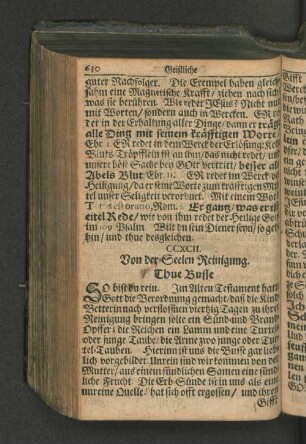 630 Geistliche
guter Nachfolger. Die Exempel haben gleich
sahm eine Magnetische Krafft/ ziehen nach sich
was sie berühren. Wie redet JEsus? Nicht nur
mit Worten/ sondern auch in Wercken. ER re
det in der Erhaltung aller Dinge/ dann er trägt
alle Ding mit seinem kräfftigen Worte/
Ebr. 1. ER redet in dem Werck der Erlösung:
Bluts-Tröpfflein an ihm/ das nicht redet/ und
unsere böse Sache bey GOtt vertritt/ besser als
Abels Blut/ Ebr. 12. ER redet im Werck der
Heiligung/ da er seine Worte zum kräfftigen Mit
tel unser Seligkeit verordnet. Mit einem Wort
Er gantz/ was er ist
eitel Rede/ wie von ihm redet der Heilige Geist
im 109 Psalm. Wilt du sein Diener seyn/ so gehe
hin/ und thue desgleichen.
CCXCII.
Von der Seelen Reinigung.
Thue Busse
SO bist du rein. Im Alten Testament hatte
Gott die Verordnung gemacht/ daß die Kind
Betterin nach verflossen viertzig Tagen zu ihrer
Reinigung bringen solte ein Sünd- und Brand
Opffer: die Reichen ein Lamm und eine Turtel
oder junge Taube/ die Arme zwo junge oder Tur
tel-Tauben. Hiermit ist uns die Busse gar lieb
lich vorgebildet. Unrein sind wir kommen von der
Mutter/ aus einem sündlichen Samen eine sünd
liche Frucht. Die Erb-Sünde ist in uns als eine
unreine Quelle/ hat sich offt ergossen/ und ihren
Gifft